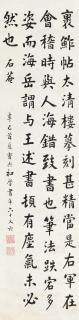 裹鮓帖太清樓摹刻甚精當是右軍在
會稽時與人海錯致書也筆法跌宕多
姿而海岳謂與王述書頗有塵氣未必
然也 石菴
辛巳